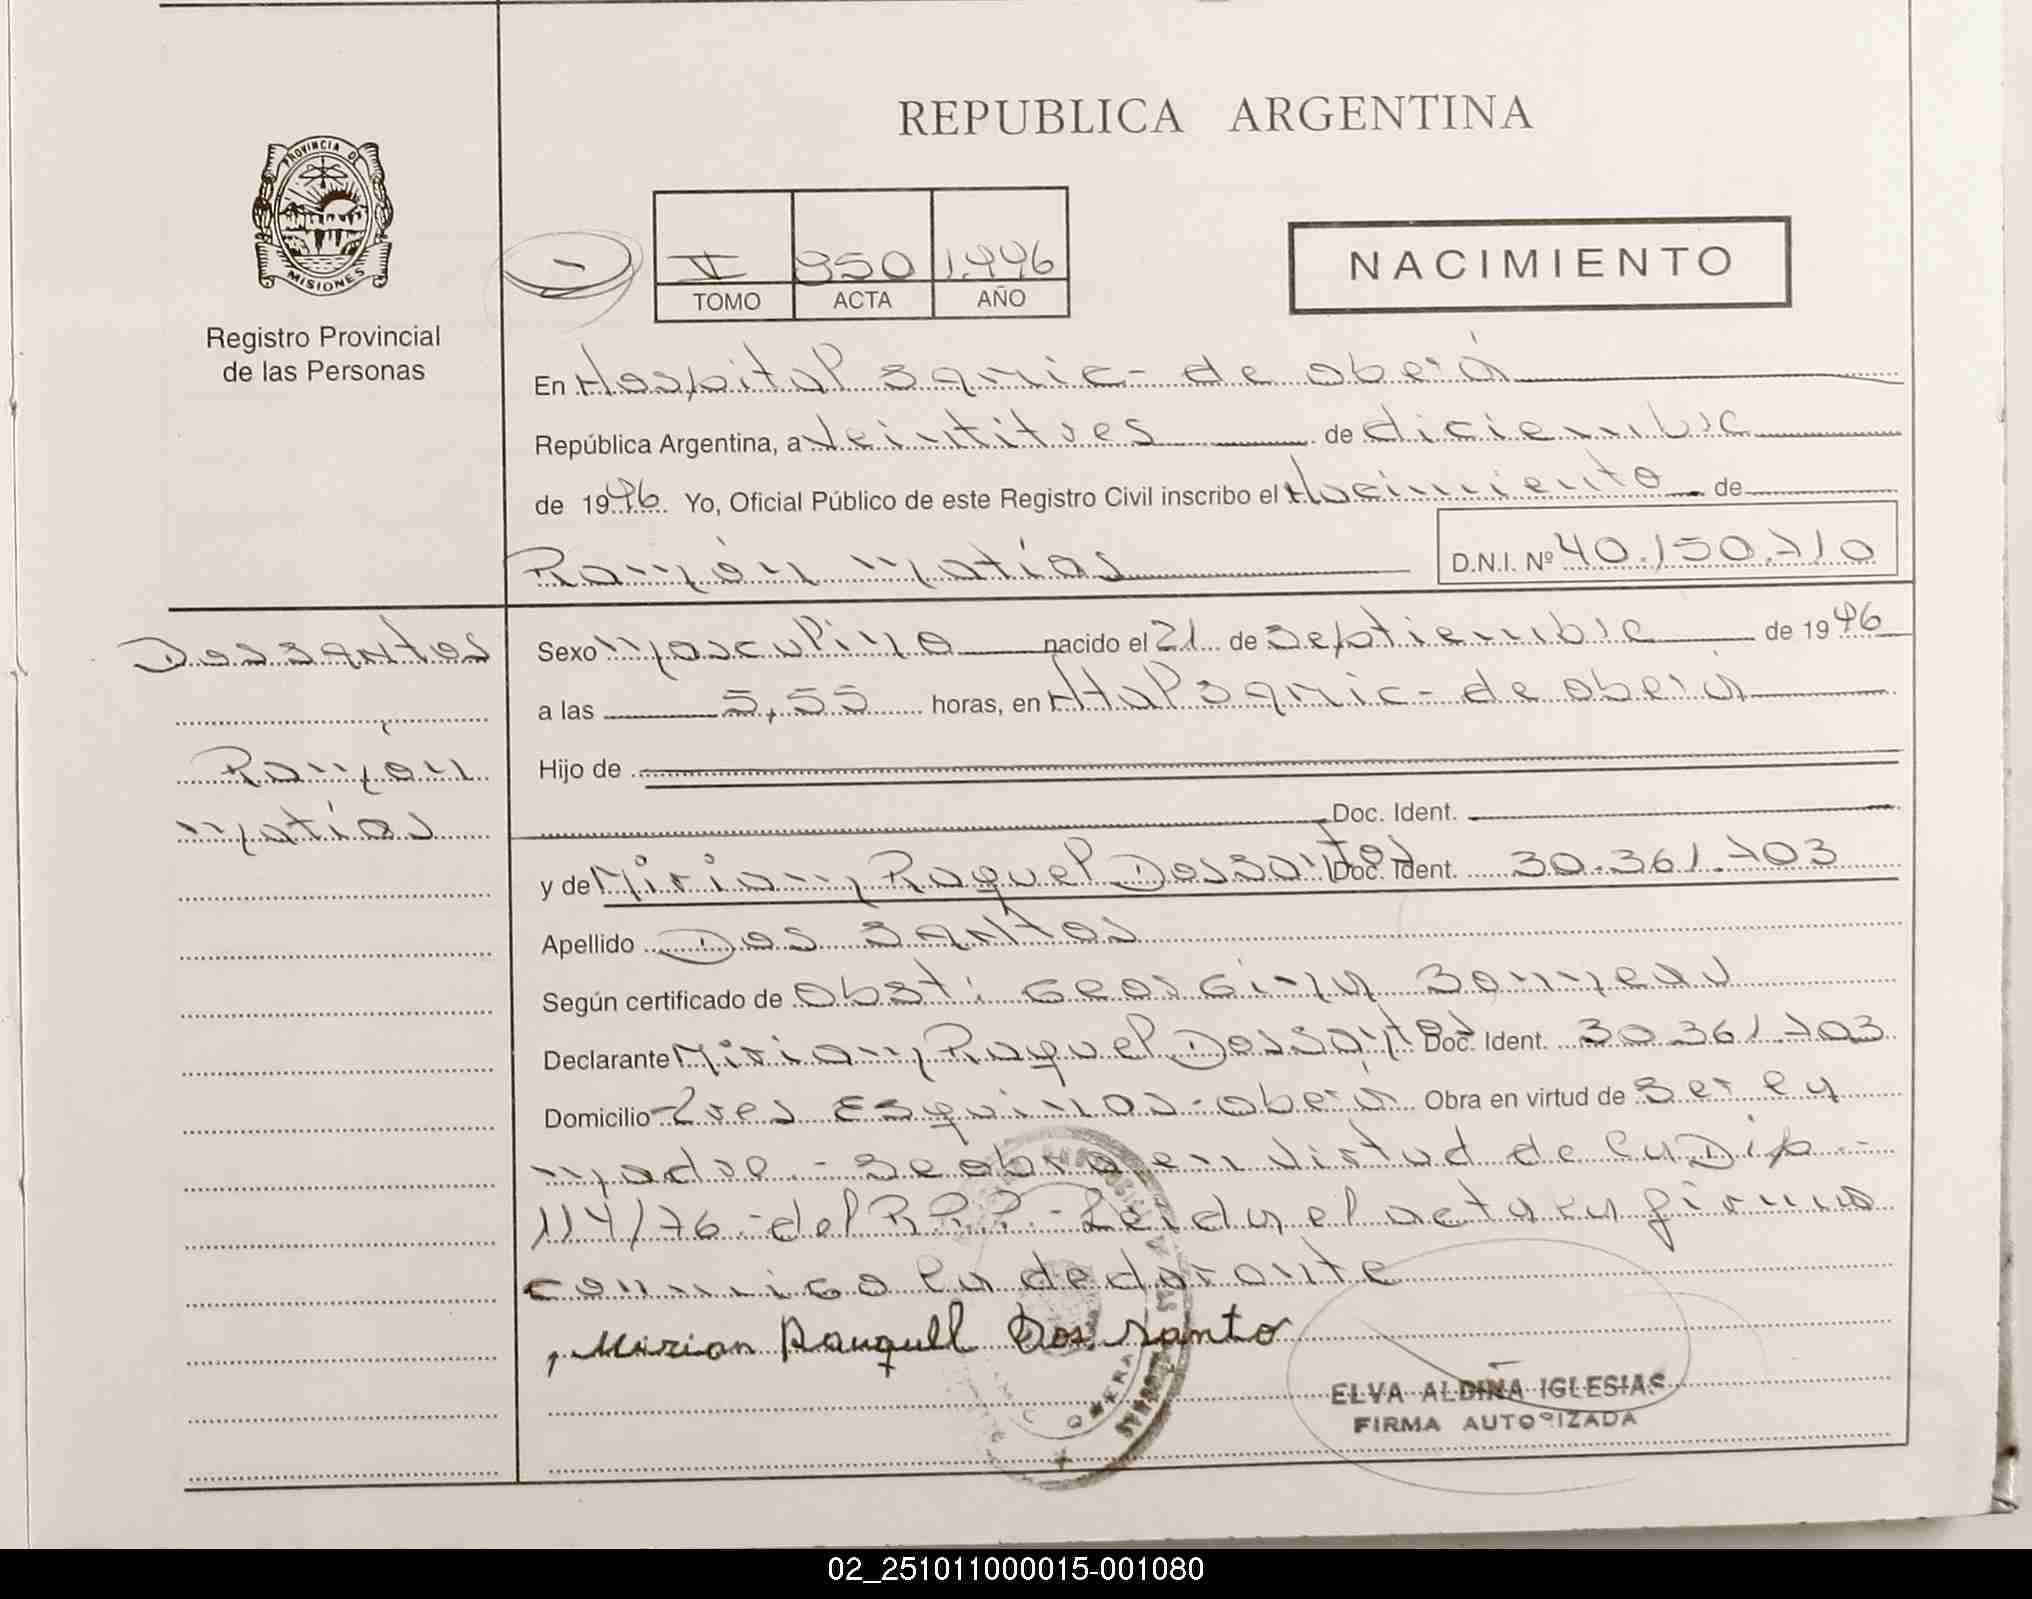 REPUBLICA ARGENTINA
PROVINCIA DE
MISIONES
Registro Provincial
de las Personas
V 950 1.996
TOMO ACTA AÑO
NACIMIENTO
En Hospital Samic - de oberá
República Argentina, a Veintitres de diciembre
de 1996. Yo, Oficial Público de este Registro Civil inscribo el Nacimiento de
Ramón Matías D.N.I. Nº 40.150.710
Dos santos
Ramón
Matías
Sexo Masculino nacido el 21 de Septiembre de 1996
a las 5,55 horas, en Htal Samic - de oberá
Hijo de
Doc. Ident.
y de Miriam Raquel Dos santos Doc. Ident. 30.361.703
Apellido Dos santos
Según certificado de obst:
Declarante Miriam Raquel Dos santos Doc. Ident. 30.361.703
Domicilio Tres Esquinas - oberá Obra en virtud de ser la
madre.- se obra en virtud de la Disp.-
114/76.- del R.P.P.- Leida el acta la firma
conmigo la declarante
Mirian Rauquell Dos santo
ELVA ALDINA IGLESIAS
FIRMA AUTORIZADA
02_251011000015-001080